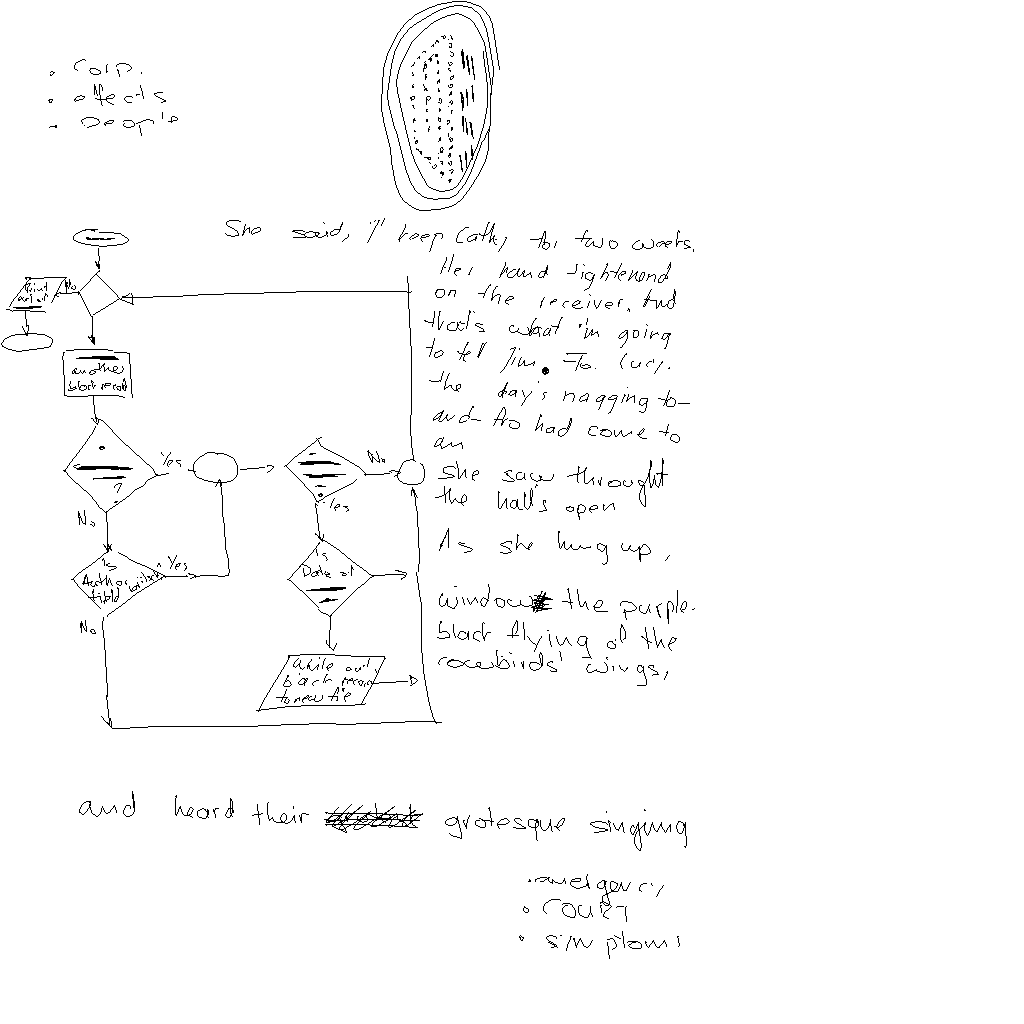 • Corp.
• affects
• People
She said, I'll keep Cathy for two weeks.
Her hand tightenend
on the receiver. And
that's what I'm going
to tell Jim. To. Lucy.
the day's nagging to-
and-fro had come to
an
she saw throught
the hall's open
As she hung up,
window the purple-
black flying of the
cowbirds' wings,
No
Print
out of
another
block record
?
Yes
No
No
Yes
Is
Author
field
Yes
No
Is
Date of
While out
block record
to new file
and heard their grotesque singing
• emergency
• COURT
• simptoms